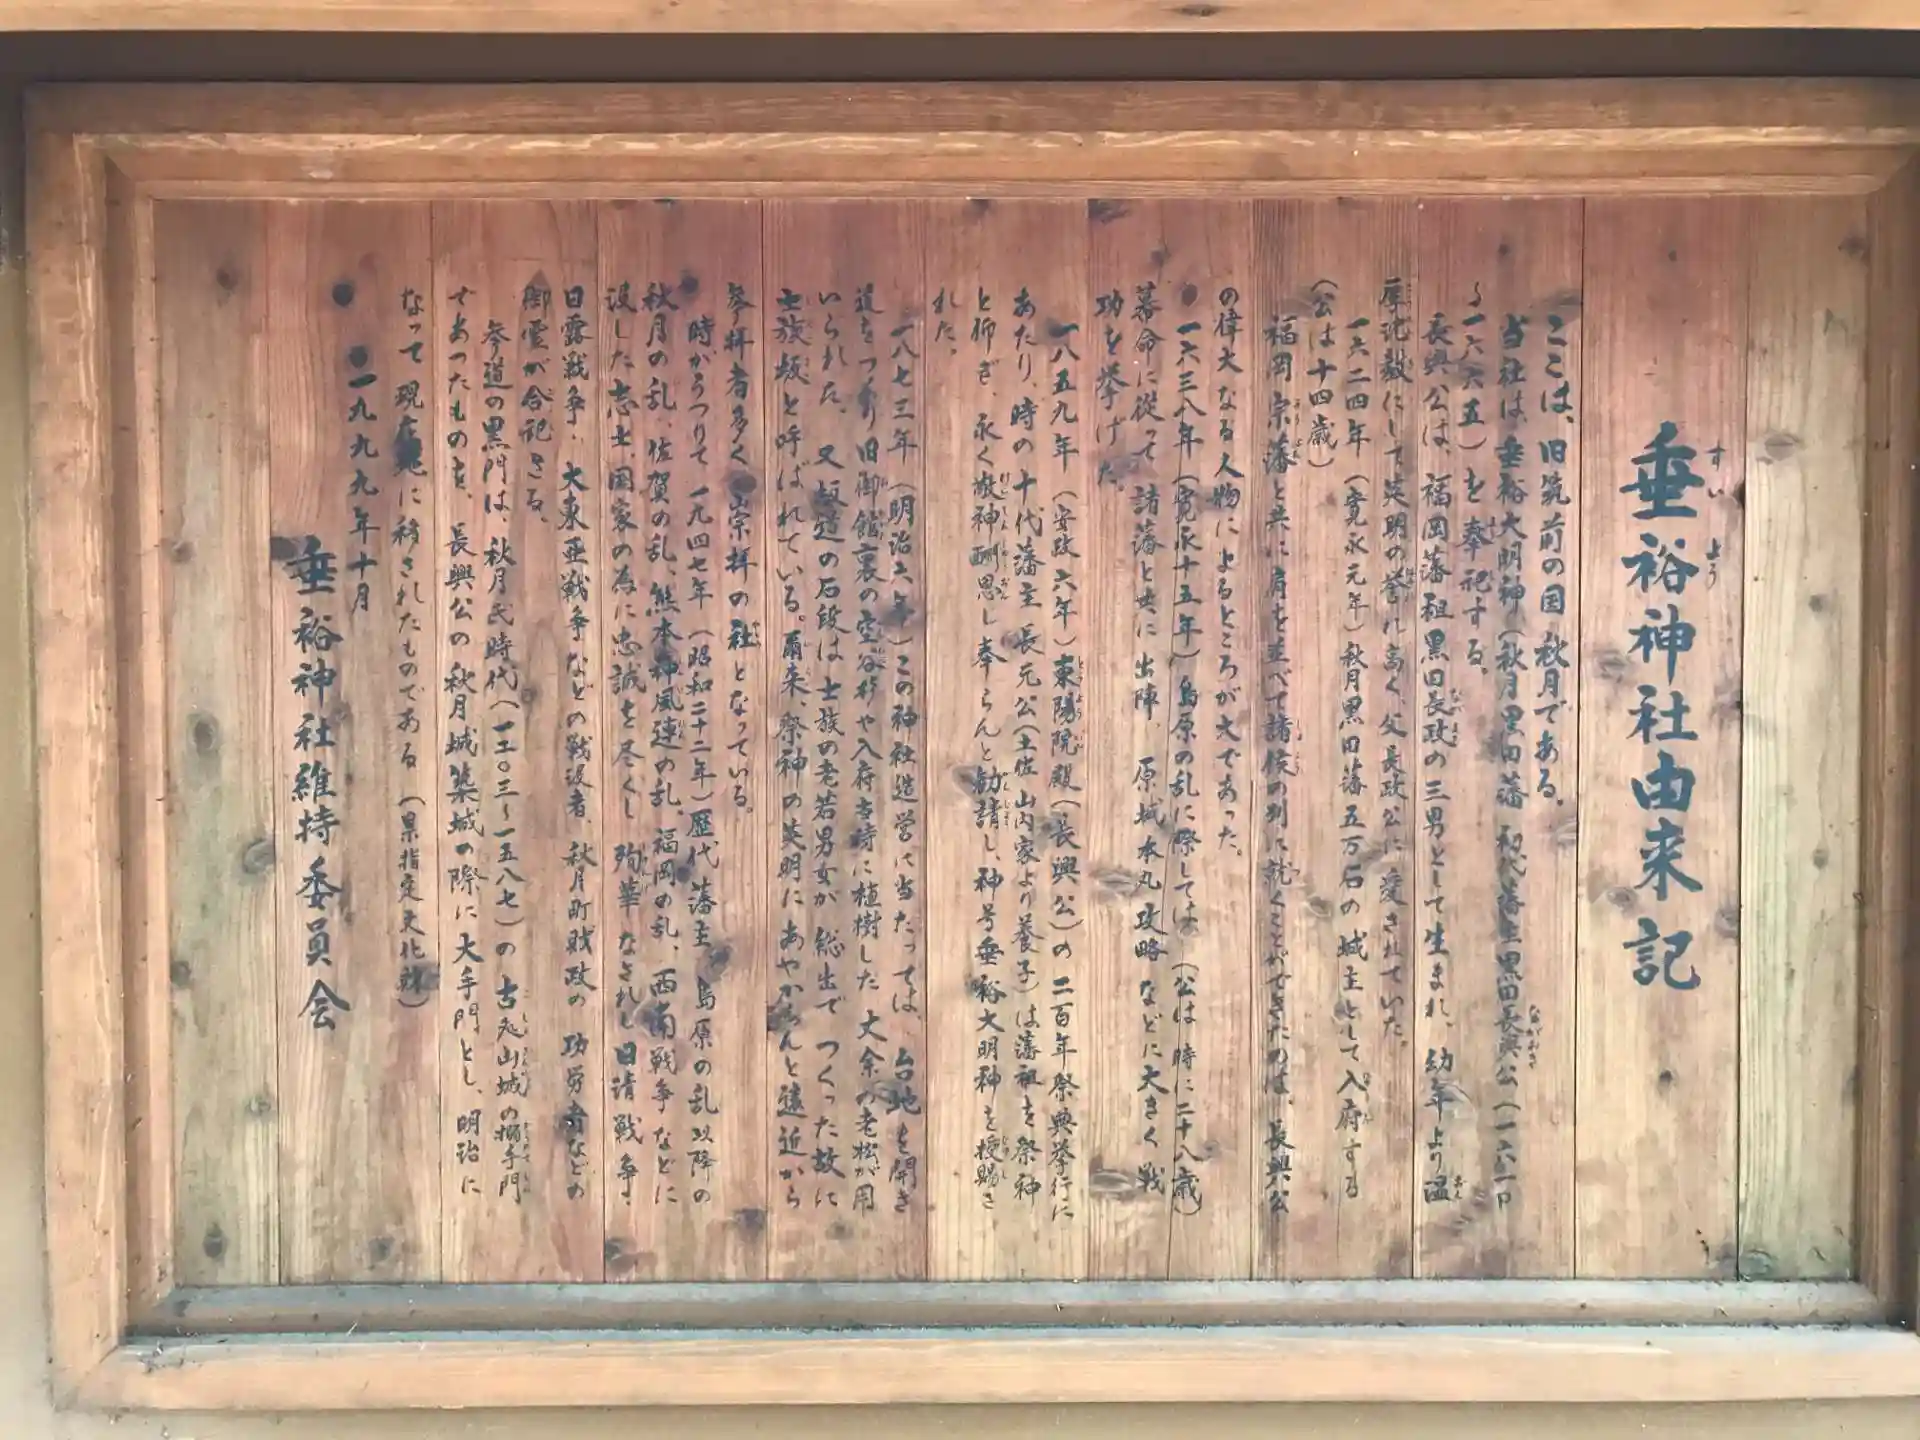 垂裕神社由来記
ここは、旧筑前の国 秋月である。
当社は、垂裕大明神(秋月黒田藩 初代藩主黒田長興公(一六一〇
～一六六五)を奉祀する。
長興公は、福岡藩祖黒田長政の三男として生まれ、幼年より温
厚沈毅にして英明の誉れ高く、父長政公に愛されていた。
一六二四年(寛永元年)秋月黒田藩五万石の城主として入府する
(公は十四歳)
福岡宗藩と共に肩を並べて諸侯の列に就くことができたのは、長興公
の偉大なる人物によるところが大であった。
一六三八年(寛永十五年)島原の乱に際しては、(公は時に二十八歳)
幕命に従って諸藩と共に出陣、原城本丸攻略などに大きく戦
功を挙げた。
一八五九年(安政六年)東陽院殿(長興公)の二百年祭典挙行に
あたり、時の十代藩主長元公(土佐山内家より養子)は藩祖を祭神
と仰ぎ、永く敬神酬恩し奉らんと勧請し、神号垂裕大明神を授賜さ
れた。
一八七三年(明治六年)この神社造営に当たっては、台地を開き
道をつくり旧御館裏の空谷杉や入府当時に植樹した大余の老松が用
いられた。又坂道の石段は士族の老若男女が総出でつくった故に
士族坂と呼ばれている。爾来、祭神の英明にあやからんと遠近から
参拝者多く崇拝の社となっている。
時がうつりて一九四七年(昭和二十二年)歴代藩主、島原の乱以降の
秋月の乱、佐賀の乱、熊本神風連の乱、福岡の乱、西南戦争などに
没した志士、国家の為に忠誠を尽くし殉華なされし日清戦争、
日露戦争、大東亜戦争などの戦没者、秋月町財政の功労者などの
御霊が合祀さる。
参道の黒門は、秋月氏時代(一二〇三～一五八七)の古処山城の搦手門
であったものを、長興公の秋月城築城の際に大手門とし、明治に
なって現在地に移されたものである(県指定文化財)
一九九九年十月
垂裕神社維持委員会